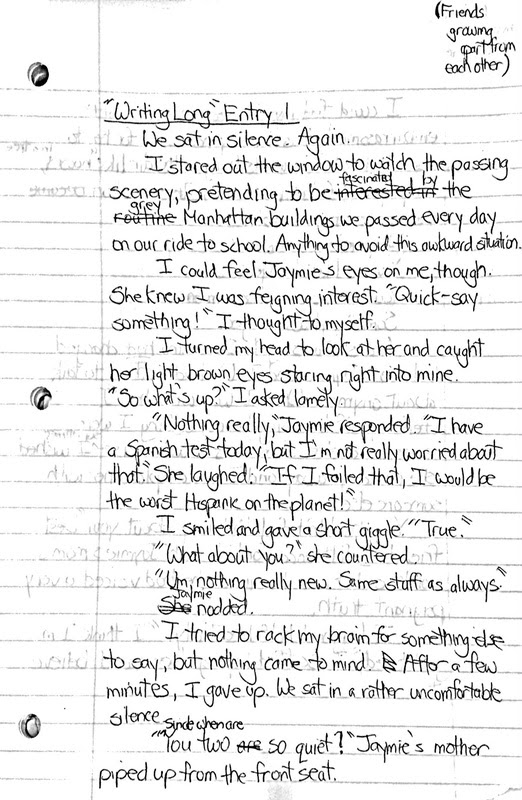 (Friends
growing
apart from
each other)
"Writing Long" Entry 1
We sat in silence. Again.
I stared out the window to watch the passing
fascinated by
scenery, pretending to be interested in the
grey
routine Manhattan buildings we passed every day
on our ride to school. Anything to avoid this awkward situation.
I could feel Jaymie's eyes on me, though.
She knew I was feigning interest. "Quick-say
something!" I thought to myself.
I turned my head to look at her and caught
her light brown eyes staring right into mine.
"So what's up?" I asked lamely.
"Nothing really," Jaymie responded. "I have
a Spanish test today, but I'm not really worried about
that." She laughed. "If I failed that, I would be
the worst Hispanic on the planet!"
I smiled and gave a short giggle. "True."
"What about you?" she countered.
"Um, nothing really new. Same stuff as always."
Jaymie
She nodded.
I tried to rack my brain for something else
to say, but nothing came to mind. After a few
minutes, I gave up. We sat in a rather uncomfortable
silence.
Since when are
"You two are so quiet?" Jaymie's mother
piped up from the front seat.